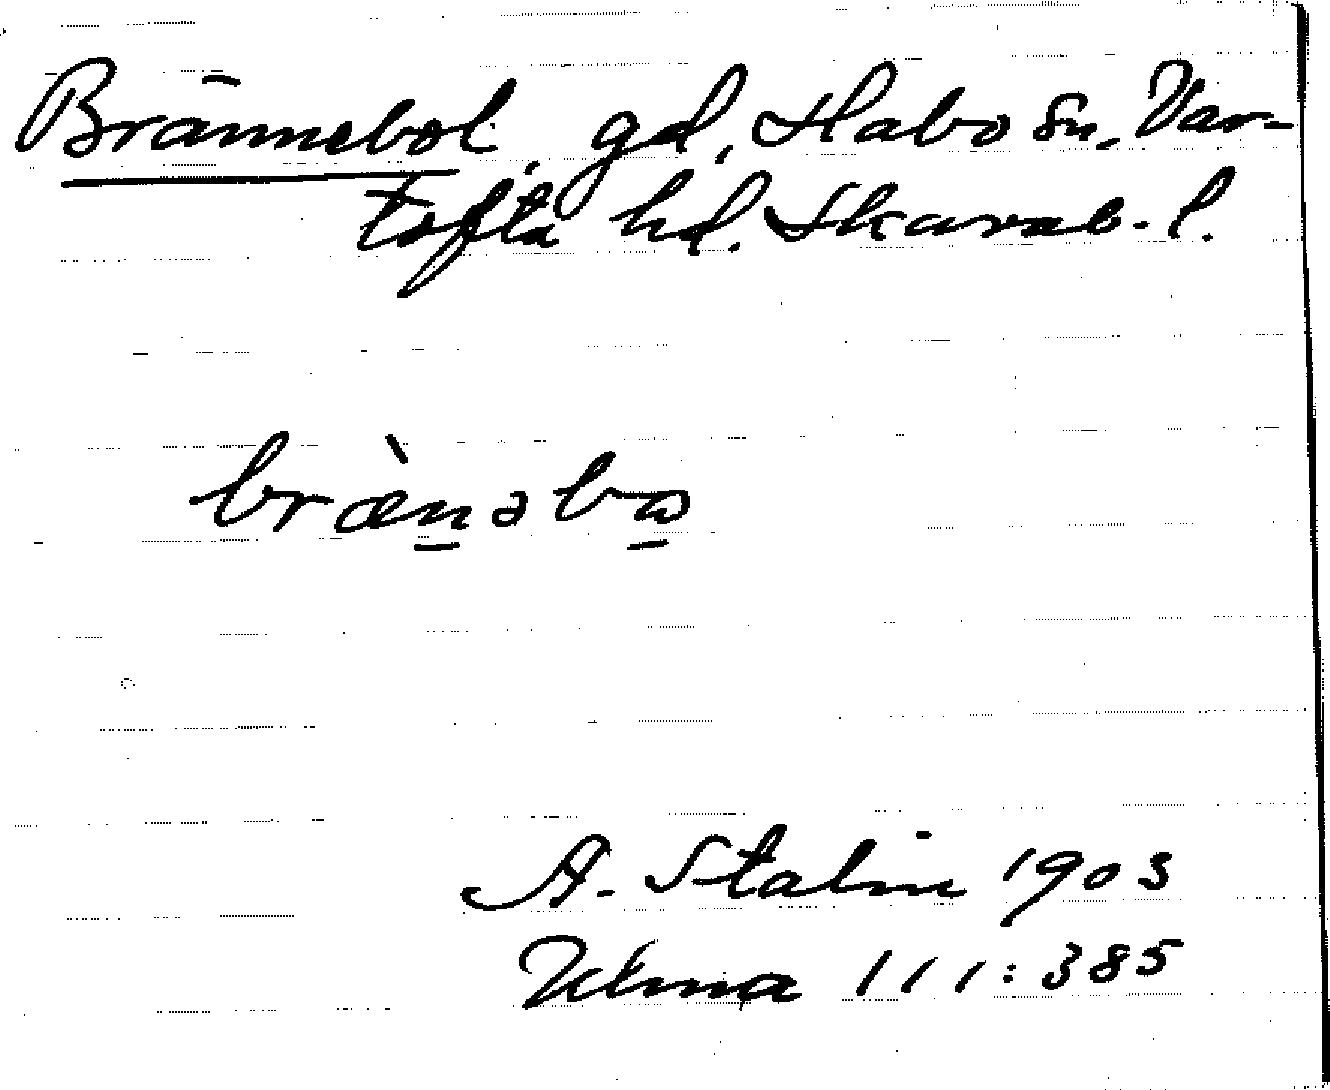 Brännebol, gd, Habo sn, Var-
tofta hd. Skarab. l.
bræ̀n̲əbω̲
A. Stalin 1903
Ulma 111:385